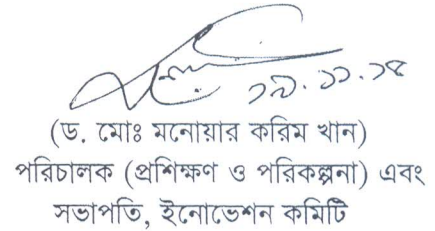 ১৯.১১.১৫
(ড. মোঃ মনোয়ার করিম খান)
পরিচালক (প্রশিক্ষণ ও পরিকল্পনা) এবং
সভাপতি, ইনোভেশন কমিটি